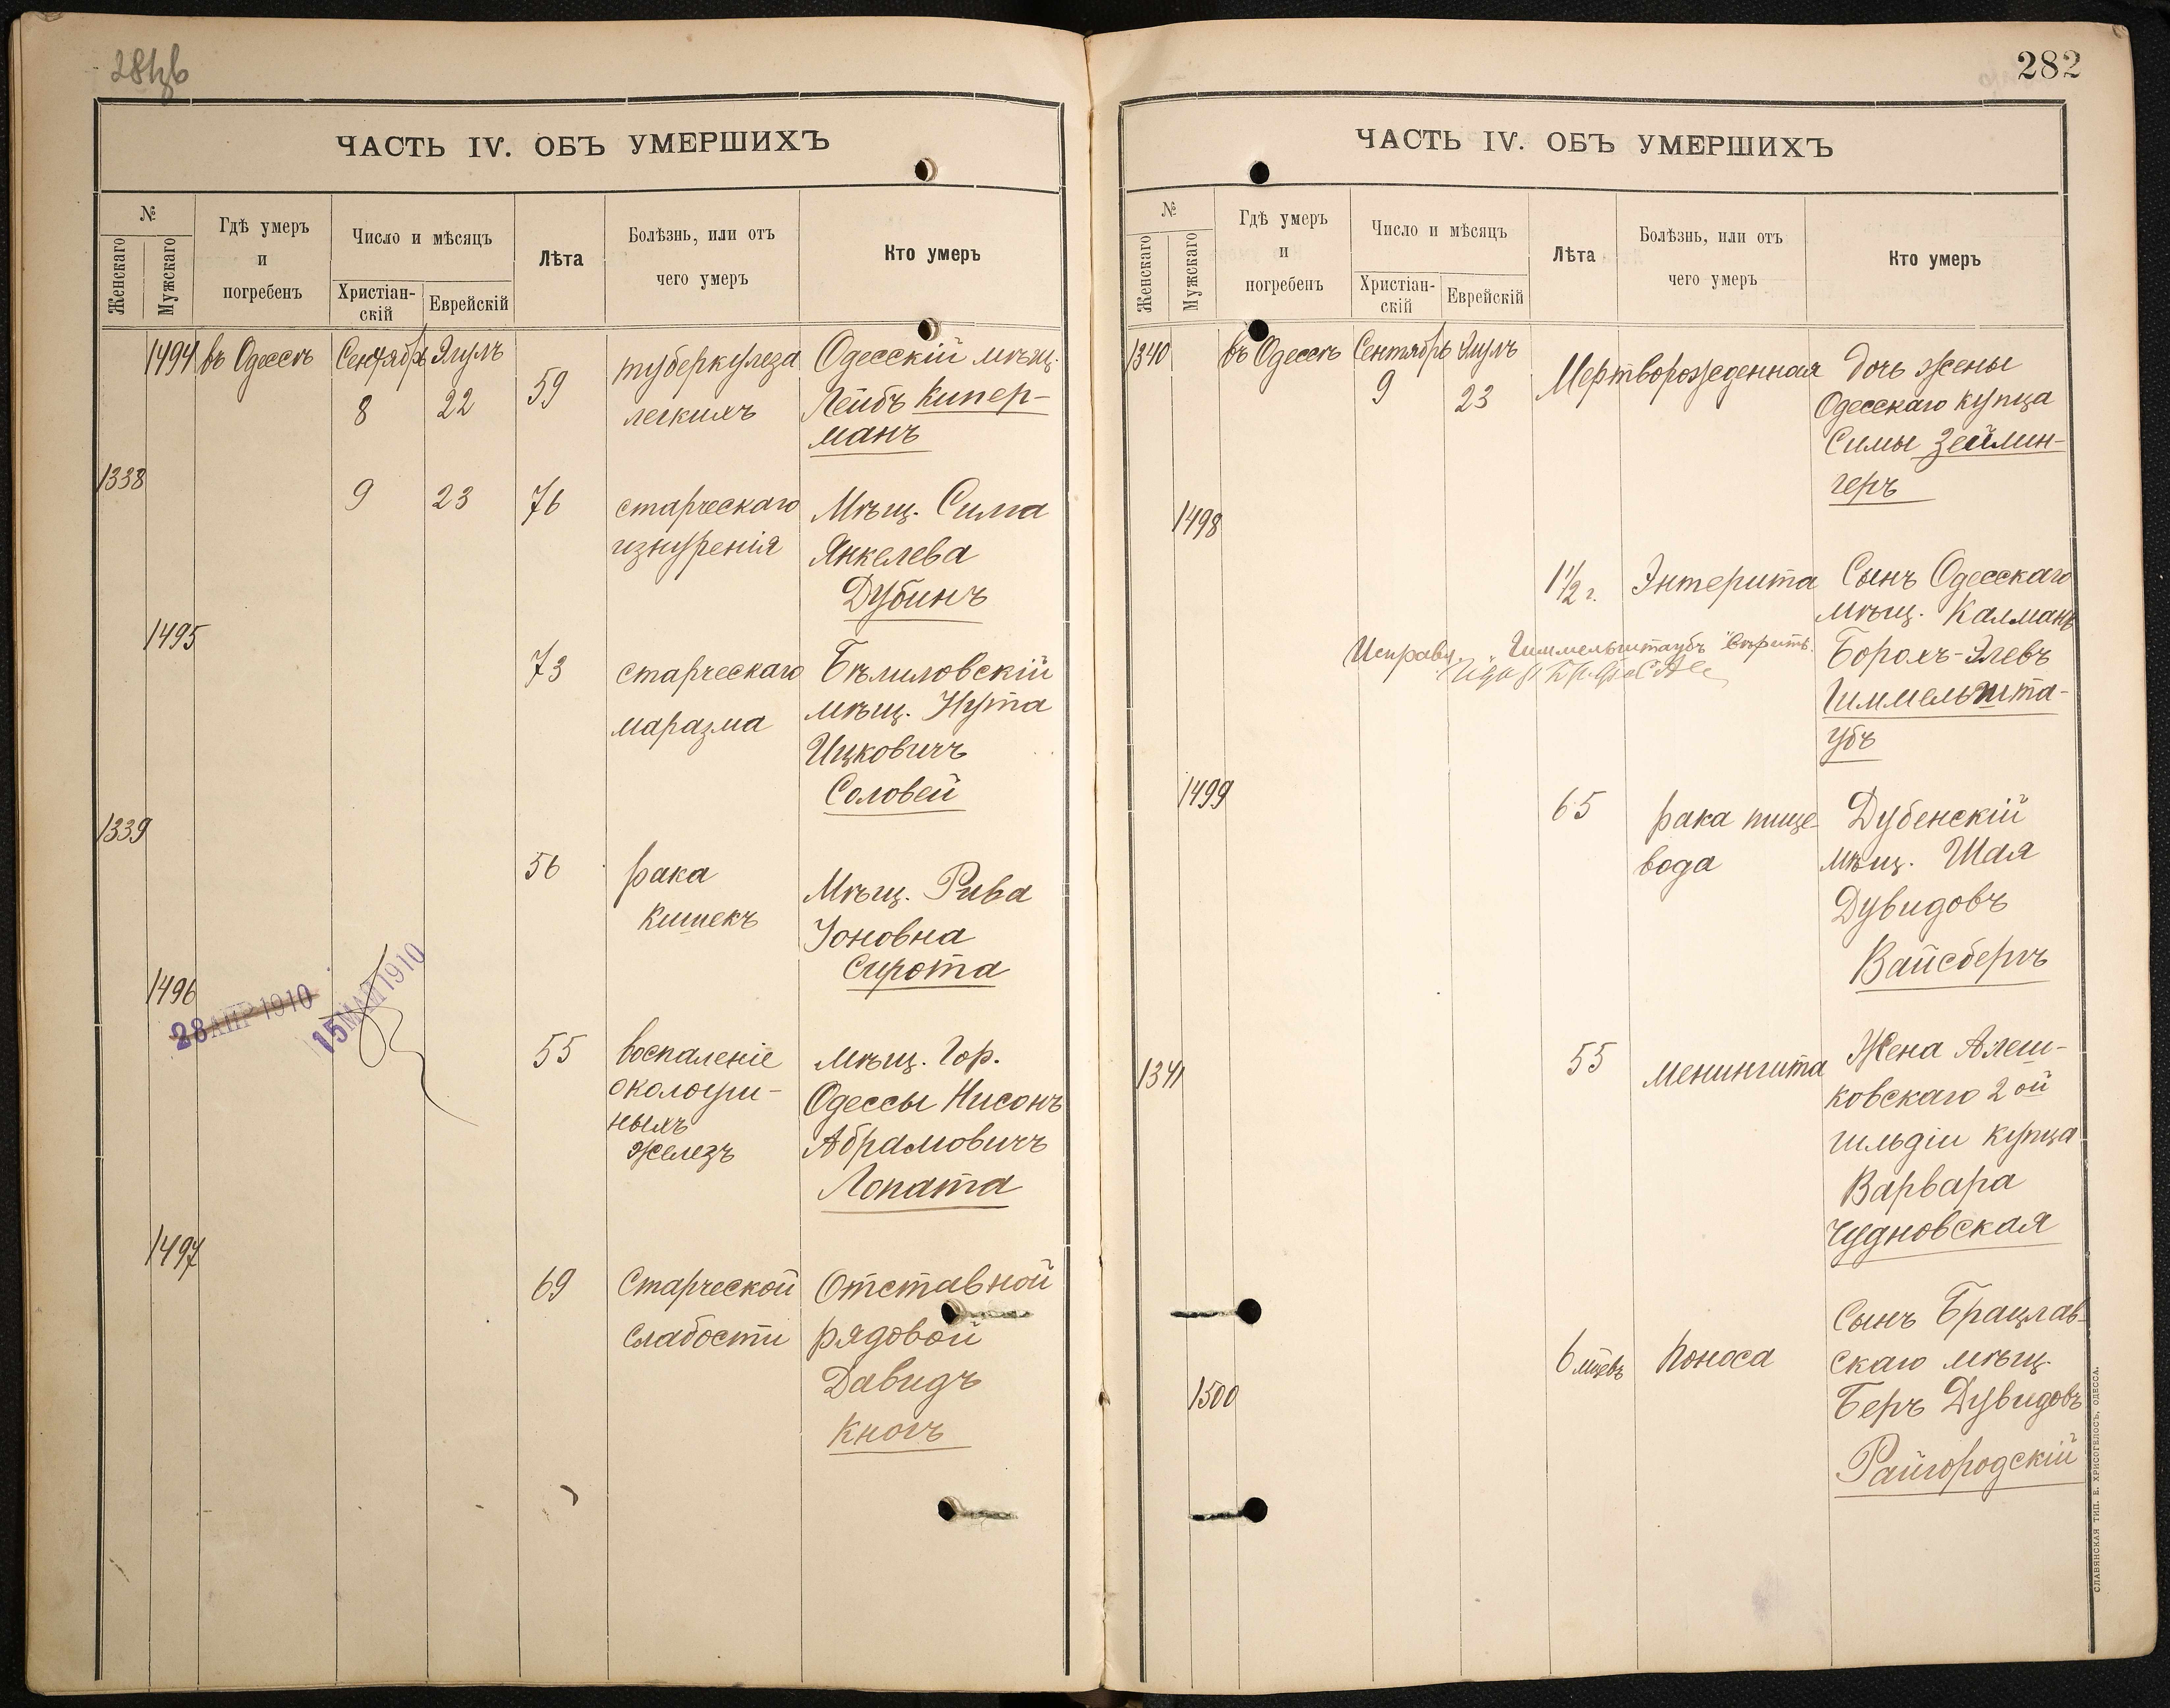 ЧАСТЬ IV. ОБЪ УМЕРШИХЪ
№
Женскаго
Мужскаго
Гдѣ умеръ
и
погребенъ
Число и мѣсяцъ
Христіан-
скій
Еврейскій
Лѣта
Болѣзнь, или отъ
чего умеръ
Кто умеръ
1494 въ Одессѣ Сентябрь Элулъ
8 22 59
туберкулеза
легкихъ
Одесскій мѣщ.
Лейбъ Кипер-
манъ
1338
9 23 76
старческаго
изнуренія
Мѣщ. Сима
Янкелева
Дубинъ
1495
73
старческаго
маразма
Бѣлиловскій
мѣщ. Нута
Ицковичъ
Соловей
1339
56
рака
кишекъ
Мѣщ. Рива
Іоновна
Сирота
1496
28 АПР 1910
15 МАЙ 1910
55
воспаленіе
околоуш-
ныхъ
железъ
мѣщ. гор.
Одессы Нисонъ
Абрамовичъ
Лопата
1497
69
Старческой
слабости
Отставной
рядовой
Давидъ
Кногъ
282
ЧАСТЬ IV. ОБЪ УМЕРШИХЪ
№
Женскаго
Мужскаго
Гдѣ умеръ
и
погребенъ
Число и мѣсяцъ
Христіан-
скій
Еврейскій
Лѣта
Болѣзнь, или отъ
чего умеръ
Кто умеръ
1340 въ Одессѣ Сентябрь Элулъ
9 23
Мертворожденная
Дочь жены
Одесскаго купца
Симы Зейлин-
геръ
1498
1 1/2 г.
Энтерита
Сынъ Одесскаго
мѣщ. Калманъ
Борохъ-Элевъ
Гиммельшта-
убъ
Исправл. „Гиммельштаубъ" вѣрить.
1499
65
рака пище-
вода
Дубенскій
мѣщ. Шая
Дувидовъ
Вайсбергъ
1341
55
менингита
Жена Алеш-
ковскаго 2ой
гильдіи купца
Варвара
Чудновская
1500
6 мѣсвъ
поноса
Сынъ Брацлав-
скаго мѣщ.
Беръ Дувидовъ
Райгородскій
СЛАВЯНСКАЯ ТИП. Е. ХРИСОГЕЛОСЪ, ОДЕССА.